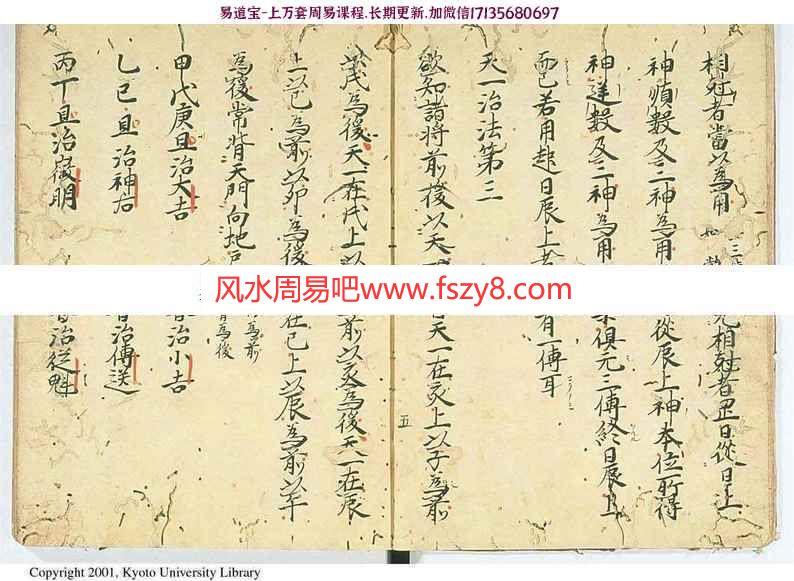 易道宝-上万套周易课程.长期更新.加微信17135680697
相尅者當以為用 相尅者罡日從日上
神順數及二神為用 從辰上神本位所得
神逆數及二神為用 俱元三傳終日辰上
而已若用起日辰上者 有一傳耳
天一治法第三
欲知諸將前後以天一 天一在亥上以子為前
五
以戌為後天一在戌上以 前以亥為後天一在辰
上以巳為前以卯為後 在巳上以辰為前以午
為後常背天門向地戶 為前
為後
甲戊庚旦治大吉 治小吉
乙己旦治神后 治傳送
丙丁旦治徵明 治從魁
风水周易吧www.fszy8.com
Copyright 2001, Kyoto University Library